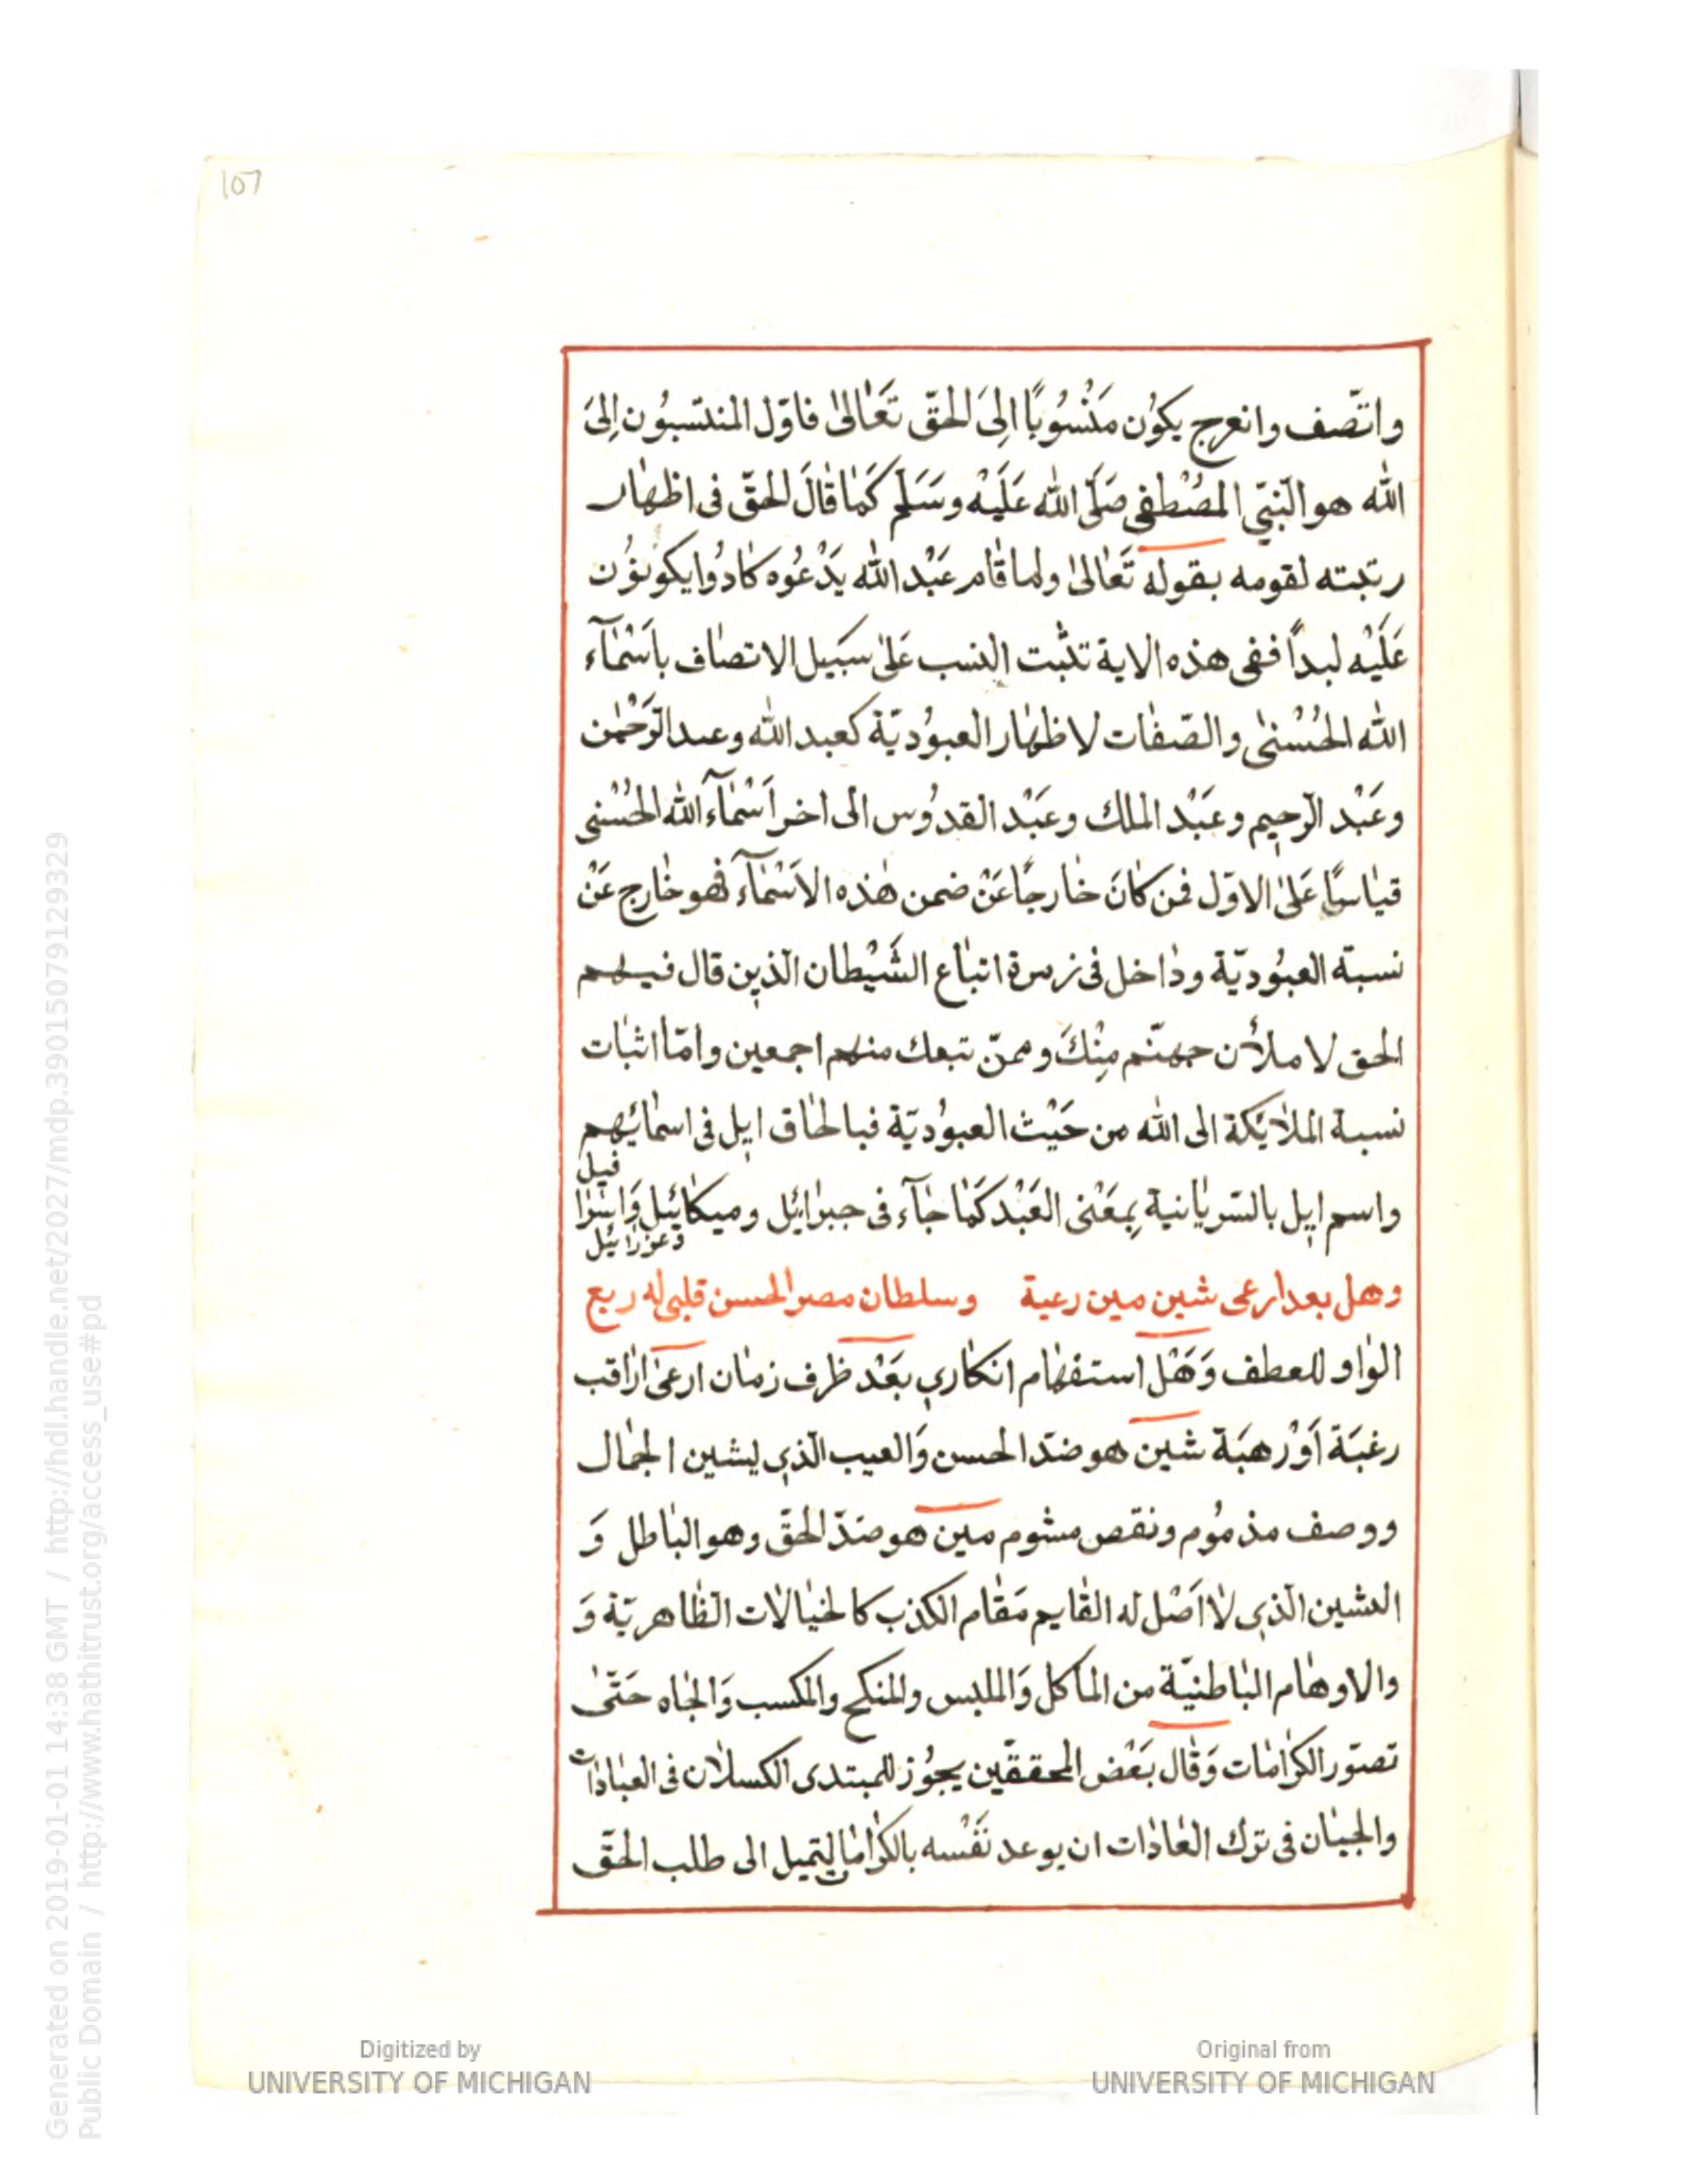 107
واتّصف وانعرج يكوُن مَنْسُوبًا اِلىَ الحقّ تَعَالىٰ فاوّل المنتسبوُن اِلىَ
الله هو النّبيّ المصْطفى صَلّى الله عَلَيْه وسَلَم كَمَا قَالَ الحقّ فى اظهار
رتبته لقومه بقوله تَعَالىٰ ولما قام عَبْد الله يَدْعُوه كادوُا يكونوُن
عَلَيْه لبداً ففى هذه الاية تثبت النسب عَلىٰ سَبيل الاتصاف باَسْمَآء
الله الحُسْنىٰ والصّفات لاظهار العبوُديّة كعبد الله وعبد الرّحْمٰن
وعَبْد الرّحيم وعَبْد الملك وعَبْد القدوُس الى اخر اَسْمَآء الله الحُسْنى
قيَاسًا عَلىٰ الاوّل فمن كانَ خارجًا عَنْ ضمن هٰذه الاَسْمَآء فهو خارج عَنْ
نسبة العبوُديّة ودَاخل فى زمرة اتباع الشَيْطان الّذين قال فيهم
الحق لاملأن جهنّم مِنْكَ وممّن تبعك منهم اجمعين وامّا اثبات
نسبة الملاَئكة الى الله من حَيْث العبوُديّة فبالحاق ايل فى اسمائهم
واسم ايل بالسّريانية بمِعَنْى العَبْد كَمَا جَآء فى جبرائل وميكائيل وَاسرَا
فيل
وعزرائيل
وهل بعد ارعى شين مين رعية وسلطان مصر الحسن قلبى له ربع
الوَاو للعطف وَهَل استفهام انكاري بعَد ظرف زمان ارعىٰ اراقب
رغبَة اَوْ رهبَة شين هو ضدّ الحسن وَالعيب الّذي يشين الجمال
ووصف مذموُم ونقص مشوم مين هو ضدّ الحقّ وهو الباطل وَ
الشين الّذي لا اَصْل له القايم مَقام الكذب كالخيالات الظاهريّة وَ
والاوهام الباطنيّة من المأكل وَالملبس والمنكح والمكسب وَالجاه حَتّىٰ
تصوّر الكرامات وَقال بَعْض المحققّين يجوُز للمبتدى الكسلان فى العبادات
والجبَان فى ترك العَادَات ان يوعد نَفْسه بالكرامات لتميل الى طلب الحقّ
Digitized by
UNIVERSITY OF MICHIGAN
Original from
UNIVERSITY OF MICHIGAN
Generated on 2019-01-01 14:38 GMT / http://hdl.handle.net/2027/mdp.39015079129329
Public Domain / http://www.hathitrust.org/access_use#pd